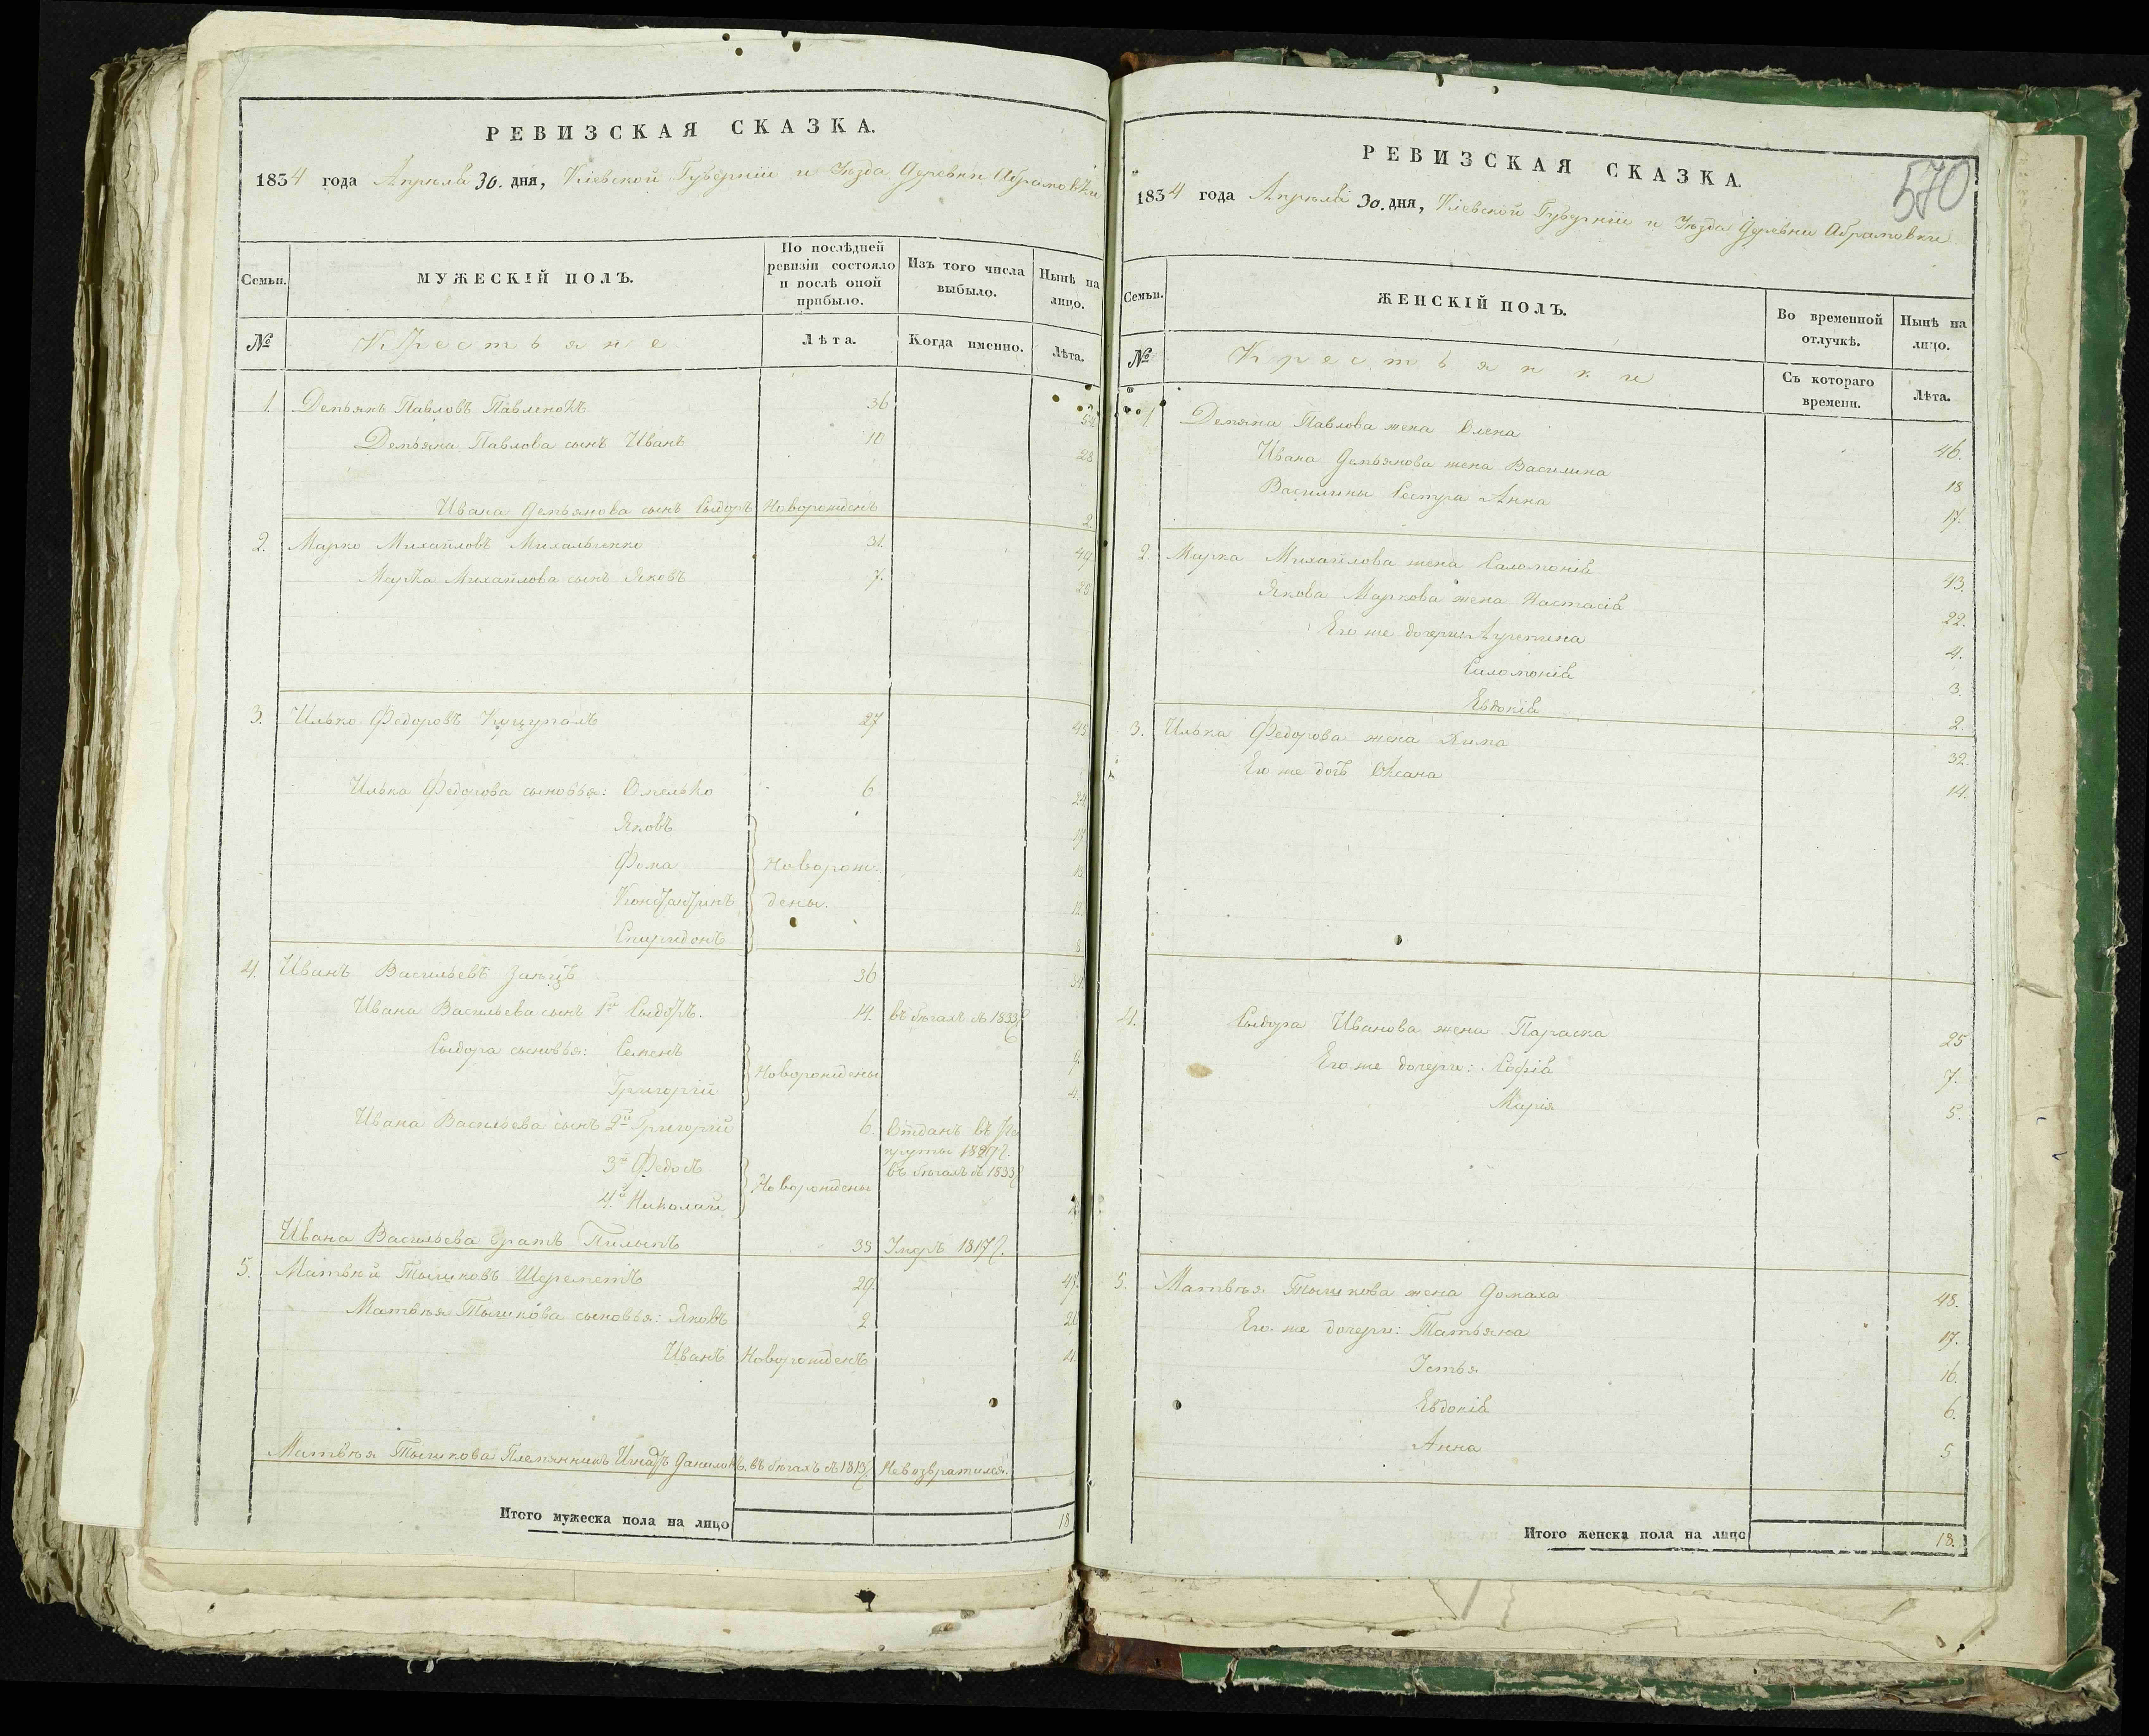 РЕВИЗСКАЯ СКАЗКА.
1834 года Апреля 30. дня, Кіевской Губерніи и Уѣзда деревни Абрамовки
Семьи. МУЖЕСКІЙ ПОЛЪ. По послѣдней ревизіи состояло и послѣ оной прибыло. Изъ того числа выбыло. Нынѣ на лицо.
№ Крестьяне Лѣта. Когда именно. Лѣта.
1. Демьянъ Павловъ 36 54
Демьяна Павлова сынъ Иванъ 10 28
Ивана Демьянова сынъ Сыдоръ Новорожденъ 2.
2. Марко Михайловъ Михальченко 31. 49.
Марка Михайлова сынъ Яковъ 7. 25
3. Илько Федоровъ 27 45
Илька Федорова сыновья: Омелько 6 24
Яковъ 17
Фома Новорож- 13.
Константинъ дены. 12.
Спиридонъ 8
4. Иванъ Васильевъ Заяцъ 36 54.
Ивана Васильева сынъ 1й Сыдоръ. 14. въ бѣгахъ съ 1833г
Сыдора сыновья: Семенъ Новорождены 9
Григорій 4.
Ивана Васильева сынъ 2й Григорій 6. Отданъ въ Ре-
круты 1827г.
3й Федосъ Новорождены въ бѣгахъ съ 1833г
4й Николай
Ивана Васильева братъ Пилыпъ 35 Умеръ 1817г.
5. Матвѣй Тышковъ Шереметъ 29. 47.
Матвѣя Тышкова сыновья: Яковъ 2 20
Иванъ Новорожденъ 4.
Матвѣя Тышкова Племянникъ Игнатъ Даниловъ. въ бѣгахъ съ 1813г Невозвратился.
Итого мужеска пола на лицо 18
РЕВИЗСКАЯ СКАЗКА.
570
1834 года Апреля 30. дня, Кіевской Губерніи и Уѣзда деревни Абрамовки
Семьи. ЖЕНСКІЙ ПОЛЪ. Во временной отлучкѣ. Нынѣ на лицо.
№ Крестьянки Съ котораго времени. Лѣта.
1 Демяна Павлова жена Олена 46.
Ивана Демьянова жена Василина 18
Василины Сестра Анна 17.
2. Марка Михайлова жена Саломонія 43.
Якова Маркова жена Настасія 22.
Его же дочери: 4.
Саломонія 3.
Евдокія 2.
3. Илька Федорова жена Хима 32.
Его же дочь Оксана 14.
4. Сыдора Иванова жена Параска 25
Его же дочери: Софія 7.
Марія 5.
5. Матвѣя Тышкова жена Домаха 48.
Его же дочери: Татьяна 17.
Устья 16.
Евдокія 6.
Анна 5
Итого женска пола на лицо 18.